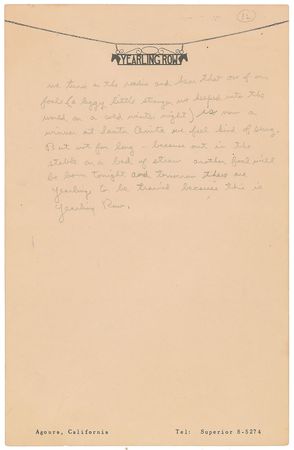 12
YEARLING ROW
we tune in the radio and hear that one of our
foals (a leggy little stranger we helped into this
world on a cold winter night) is now a
winner at Santa Anita we feel kind of smug.
But not for long - because out in the
stable on a bed of straw another foal will
be born tonight and tomorrow there are
yearlings to be trained because this is
Yearling Row.
Agoura, California Tel: Superior 8-5274